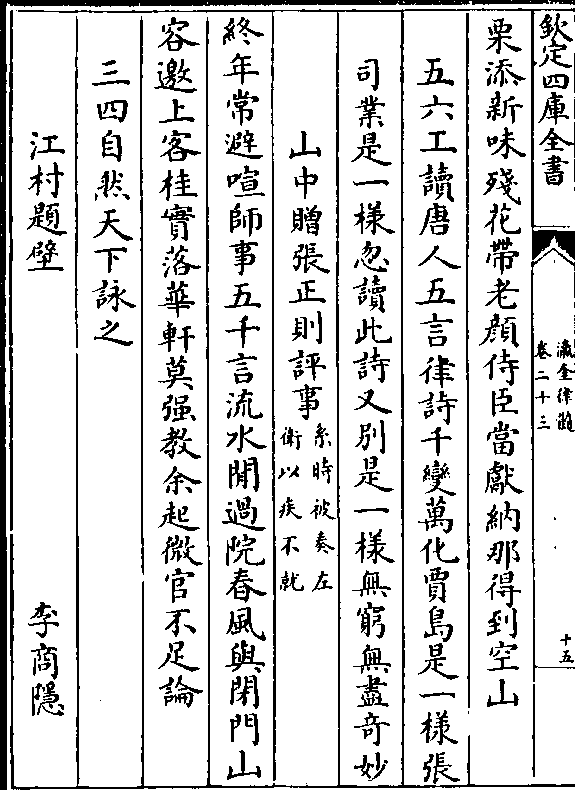 欽定四庫全書
瀛奎律髓
卷二十三
十五
栗添新味殘花帶老顔侍臣當獻納那得到空山
五六工讀唐人五言律詩千變萬化賈島是一様張
司業是一様忽讀此詩又別是一様無窮無盡竒妙
山中贈張正則評事系時被奏左衛以疾不就
終年常避喧師事五千言流水閒過院春風與閉門山
容邀上客桂實落華軒莫强教余起微官不足論
三四自然天下詠之
江村題壁 李商隱